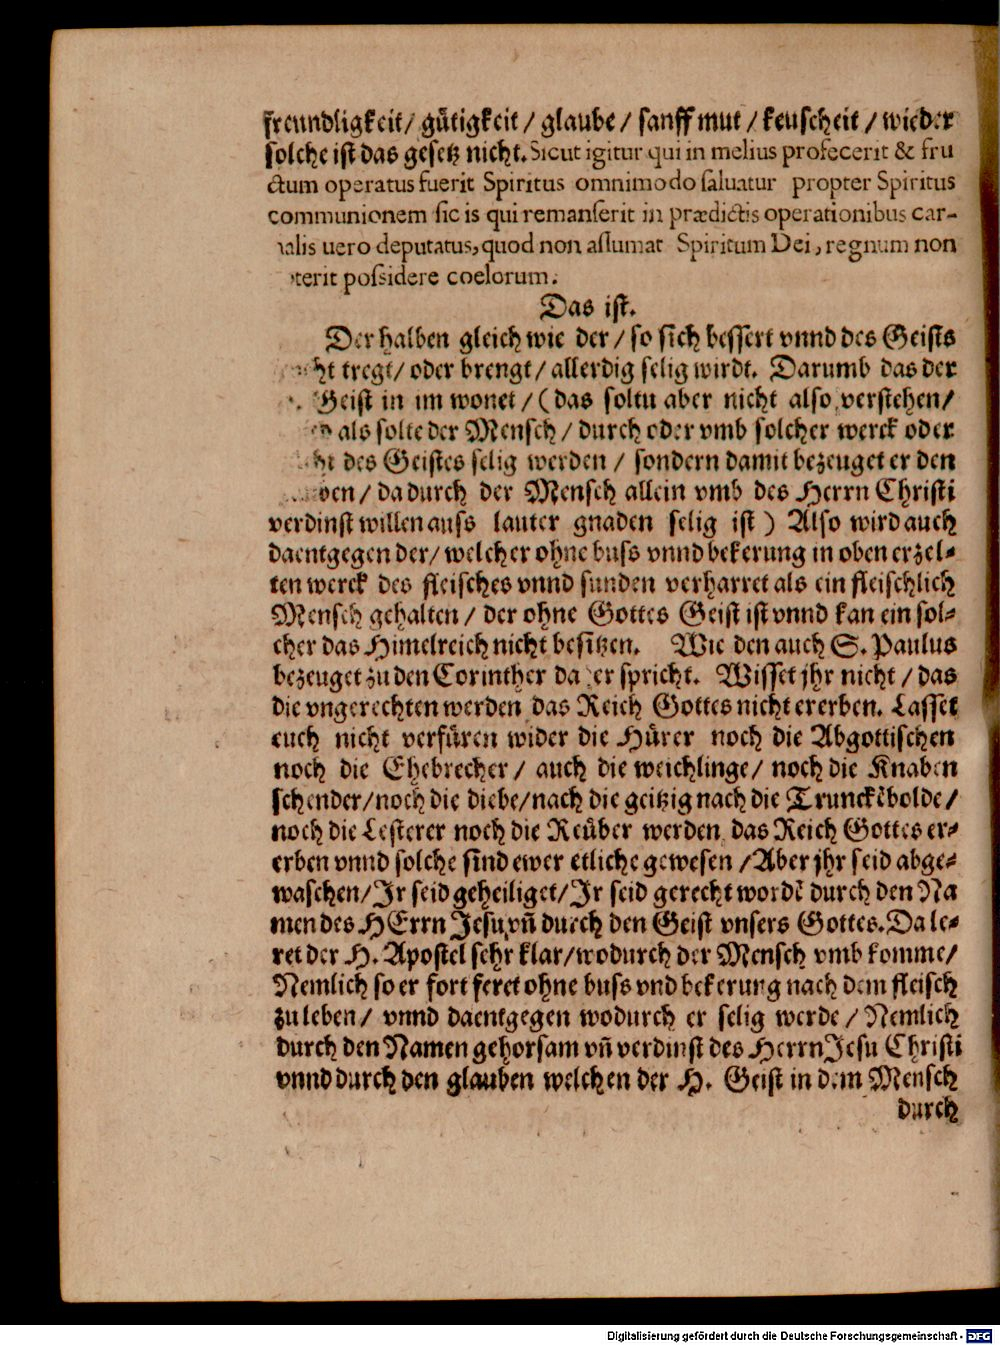 freundligkeit/ gütigkeit / glaube / sanfft mut / keuscheit / wieder
solche ist das gesetz nicht. Sicut igitur qui in melius profecerit & fru
ctum operatus fuerit Spiritus omnimodo saluatur propter Spiritus
communionem sic is qui remanserit in prædictis operationibus car-
nalis uero deputatus, quod non assumat Spiritum Dei, regnum non
terit possidere coelorum.
Das ist.
Der halben gleich wie der / so sich bessert vnnd des Geists
cht tregt/ oder brengt / allerdig selig wirdt. Darumb das der
Geist in im wonet / (das soltu aber nicht also verstehen/
als solte der Mensch / durch oder vmb solcher werck oder
cht des Geistes selig werden / sondern damit bezeuget er den
ben / dadurch der Mensch allein vmb des Herrn Christi
verdinst willen auss lauter gnaden selig ist ) Also wird auch
daentgegen der/ welcher ohne buss vnnd bekerung in oben erzel-
ten werck des fleisches vnnd sunden verharret als ein fleischlich
Mensch gehalten / der ohne Gottes Geist ist vnnd kan ein sol-
cher das Himelreich nicht besitzen. Wie den auch S. Paulus
bezeuget zu den Corinther da er spricht. Wisset jhr nicht / das
die vngerechten werden das Reich Gottes nicht ererben. Lasset
euch nicht verfüren wider die Hürer noch die Abgottischen
noch die Ehebrecher / auch die weichlinge/ noch die Knaben
schender/noch die diebe/nach die geitzig nach die Trunckẽbolde/
noch die Lesterer noch die Reüber werden das Reich Gottes er-
erben vnnd solche sind ewer etliche gewesen /Aber jhr seid abge-
waschen/Jr seid geheiliget/Jr seid gerecht wordẽ durch den Na
men des HErrn Jesu,vñ durch den Geist vnsers Gottes. Da le-
ret der H. Apostel sehr klar/wodurch der Mensch vmb komme/
Nemlich so er fort feret ohne buss vnd bekerung nach dem fleisch
zu leben/ vnnd daentgegen wodurch er selig werde / Nemlich
durch den Namen gehorsam vñ verdinst des Herrn Jesu Christi
vnnd durch den glauben welchen der H. Geist in dem Mensch
durch
Digitalisierung gefördert durch die Deutsche Forschungsgemeinschaft - DFG